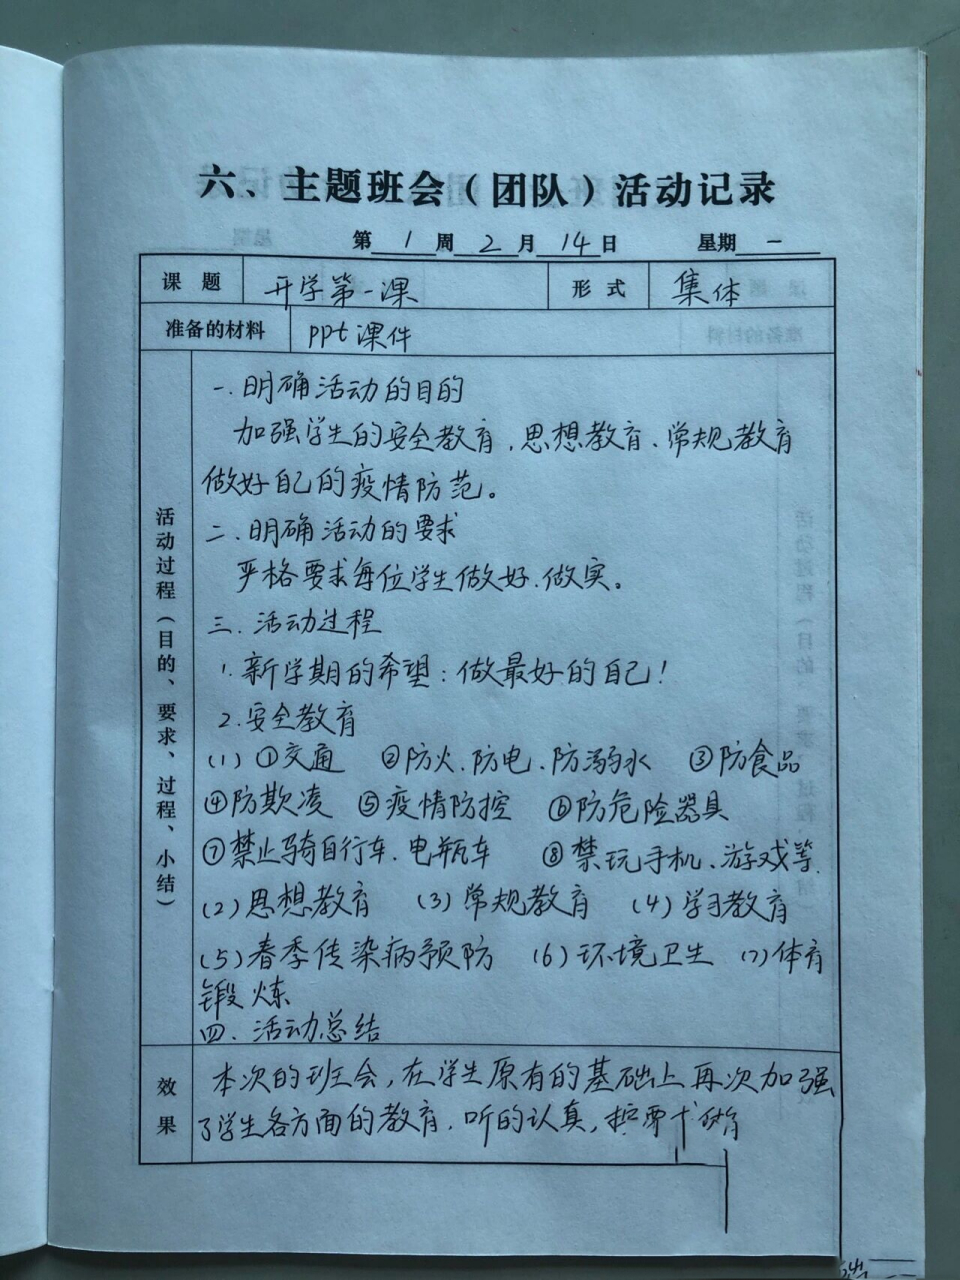 六、主题班会（团队）活动记录
第 1 周 2 月 14 日 星期 一
课题 开学第一课 形式 集体
准备的材料 ppt课件
活动过程（目的、要求、过程、小结）
一.明确活动的目的
加强学生的安全教育,思想教育、常规教育
做好自己的疫情防范。
二.明确活动的要求
严格要求每位学生做好.做实。
三.活动过程
1.新学期的希望:做最好的自己!
2.安全教育
(1)①交通 ②防火.防电.防溺水 ③防食品
④防欺凌 ⑤疫情防控 ⑥防危险器具
⑦禁止骑自行车.电瓶车 ⑧禁玩手机、游戏等.
(2)思想教育 (3)常规教育 (4)学习教育
(5)春季传染病预防 (6)环境卫生 (7)体育
锻炼
四、活动总结
效果
本次的班会,在学生原有的基础上再次加强
了学生各方面的教育.听的认真,